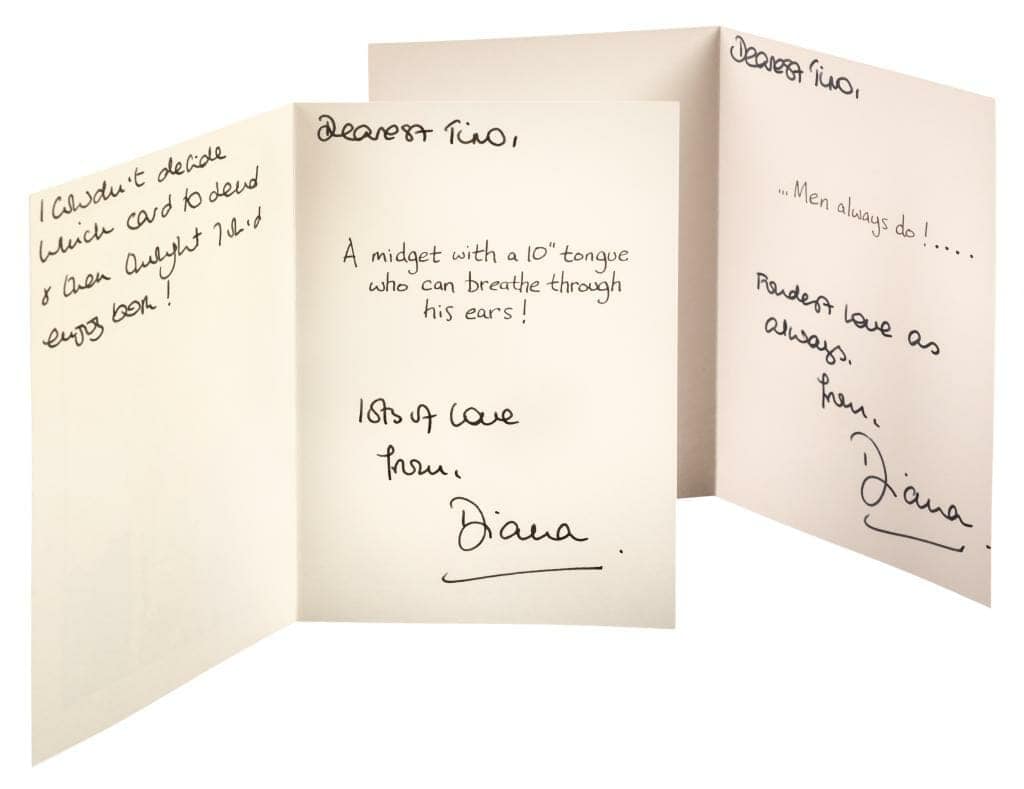 I couldn't decide
which card to send
& then thought I'd
enjoy both!
Dearest Tino,
A midget with a 10" tongue
who can breathe through
his ears!
lots of love
from,
Diana
Dearest Tino,
...Men always do!....
Fondest love as
always.
from,
Diana